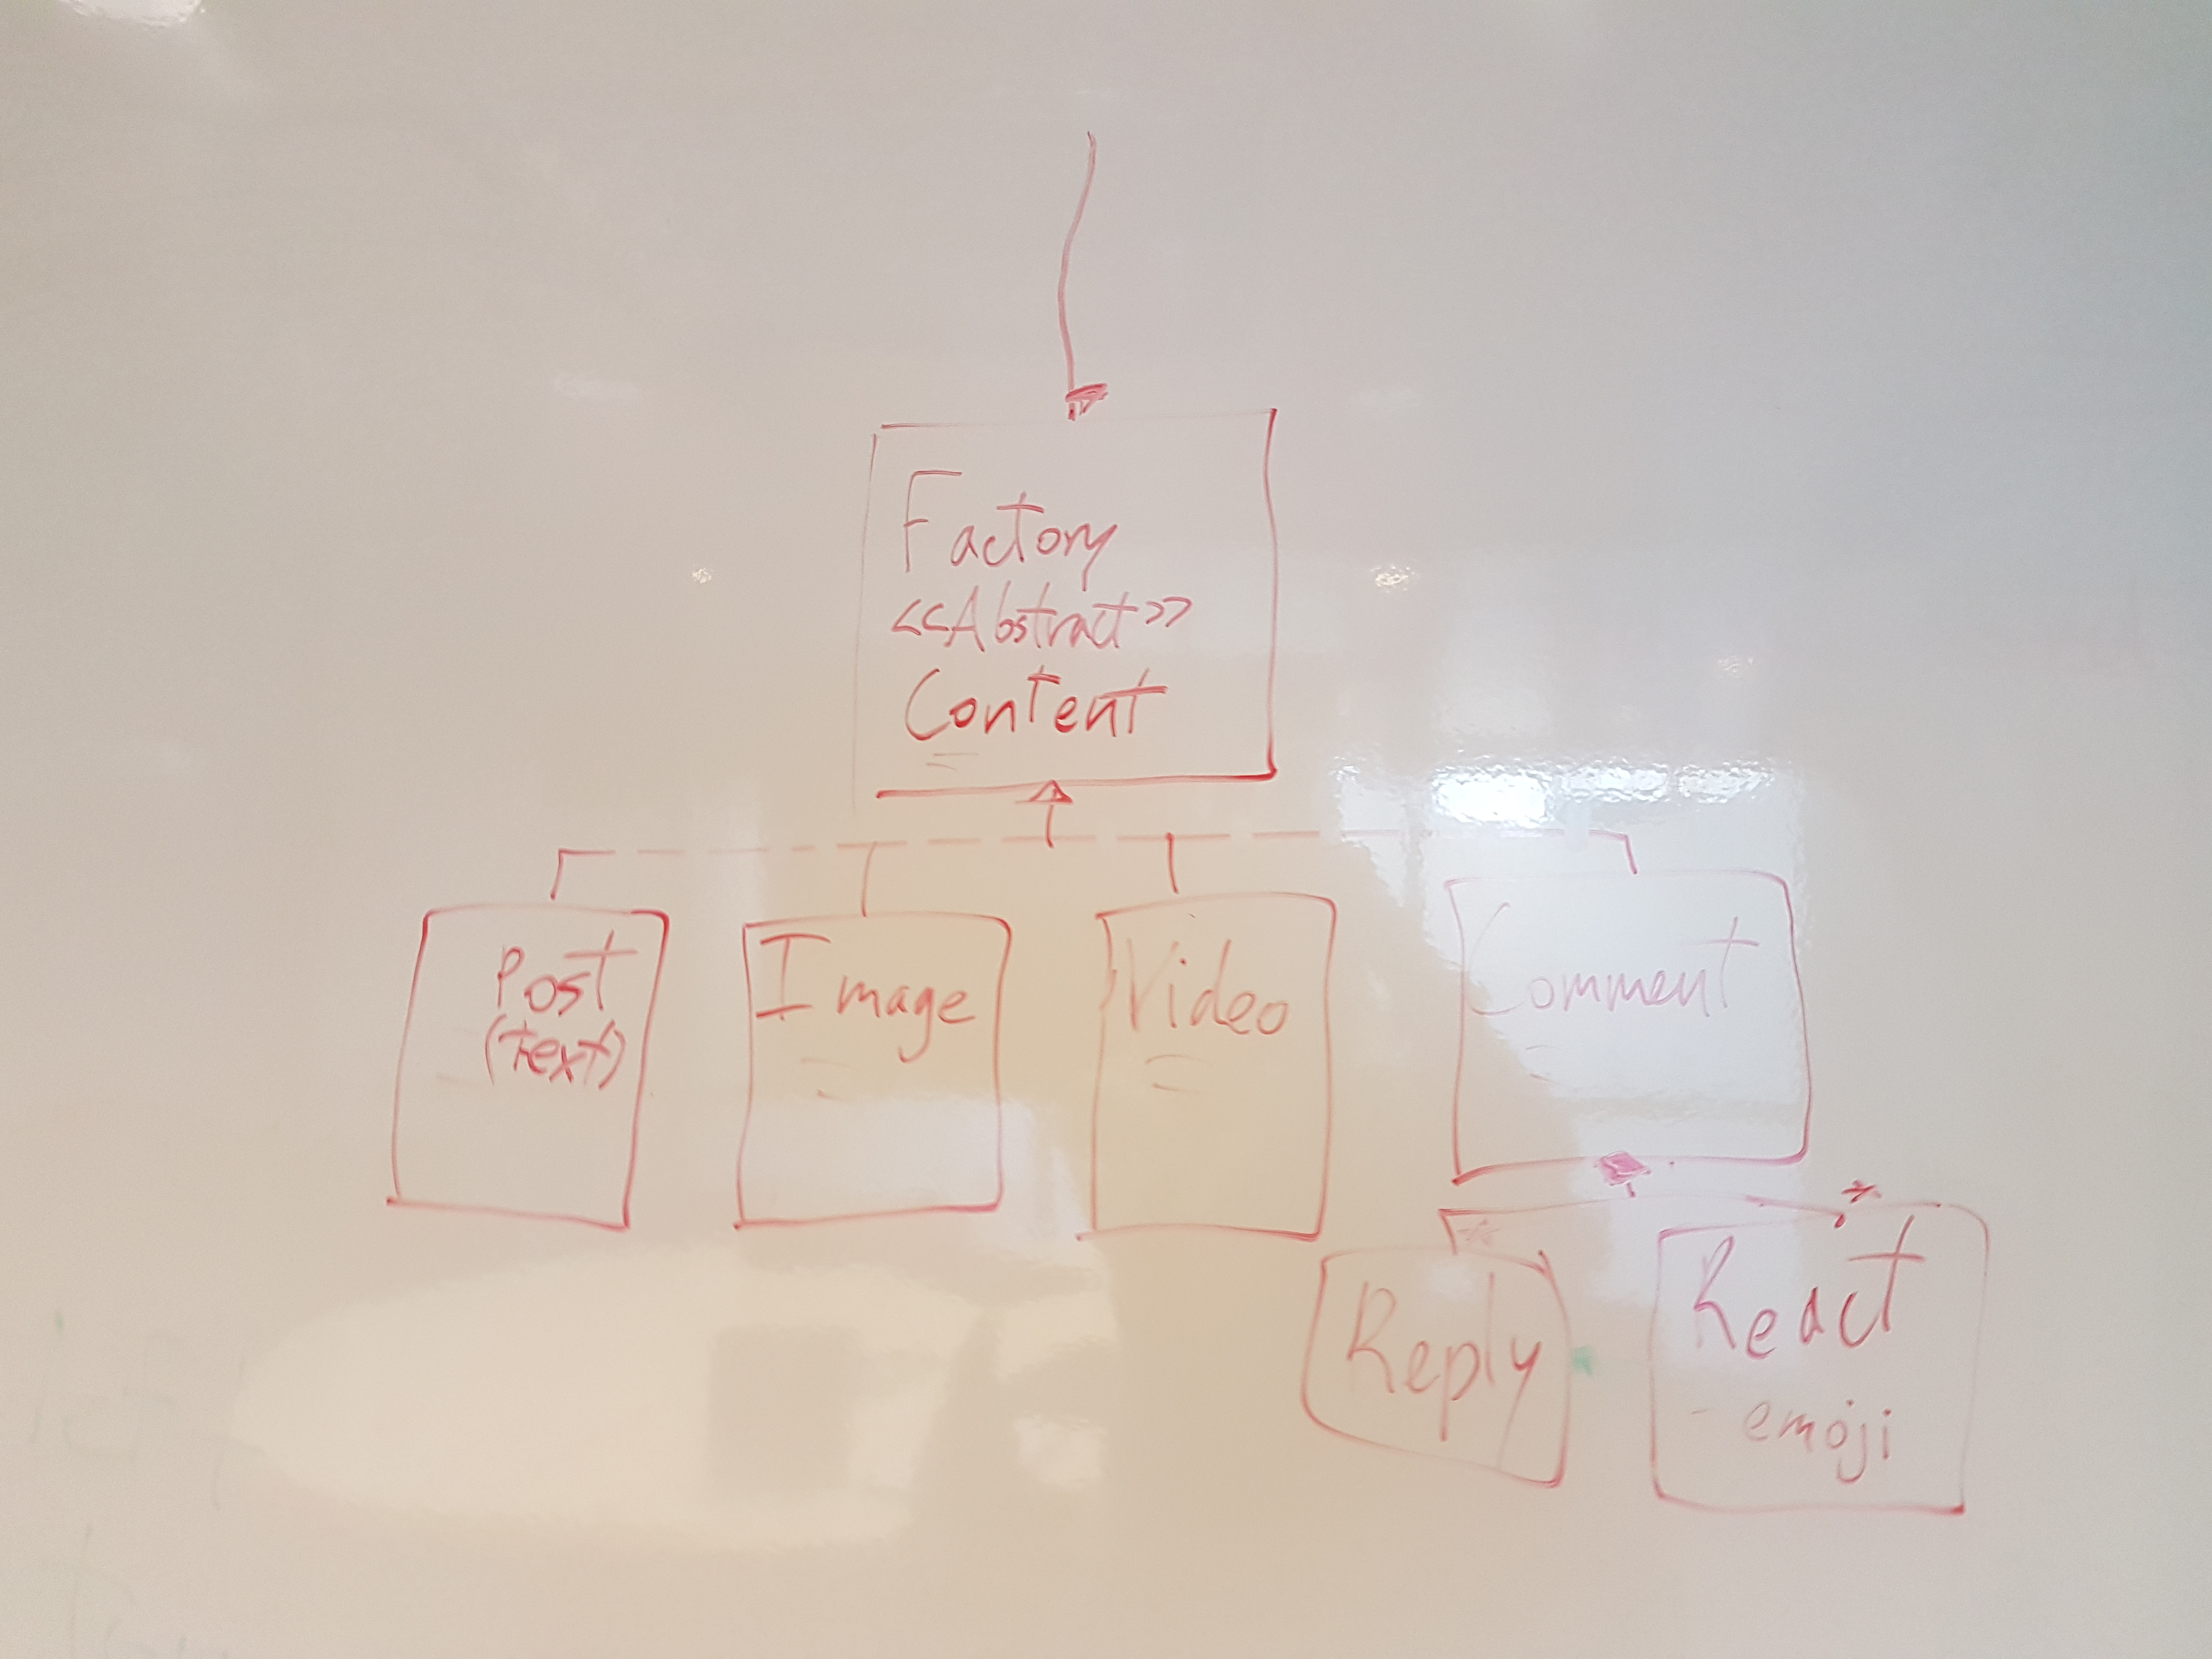 Factory
<<Abstract>>
Content
Post
(text)
Image
Video
Comment
*
*
Reply
React
- emoji